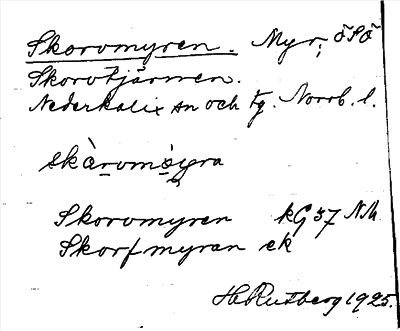 Skorvmyren. Myr; öSö
Skorvtjärnen.
Nederkalix sn och tg. Norrb. l.
skàrvmo̯yra
Skorvmyren kG 37 NM.
Skorfmyran ek
H. Rutberg 1925.